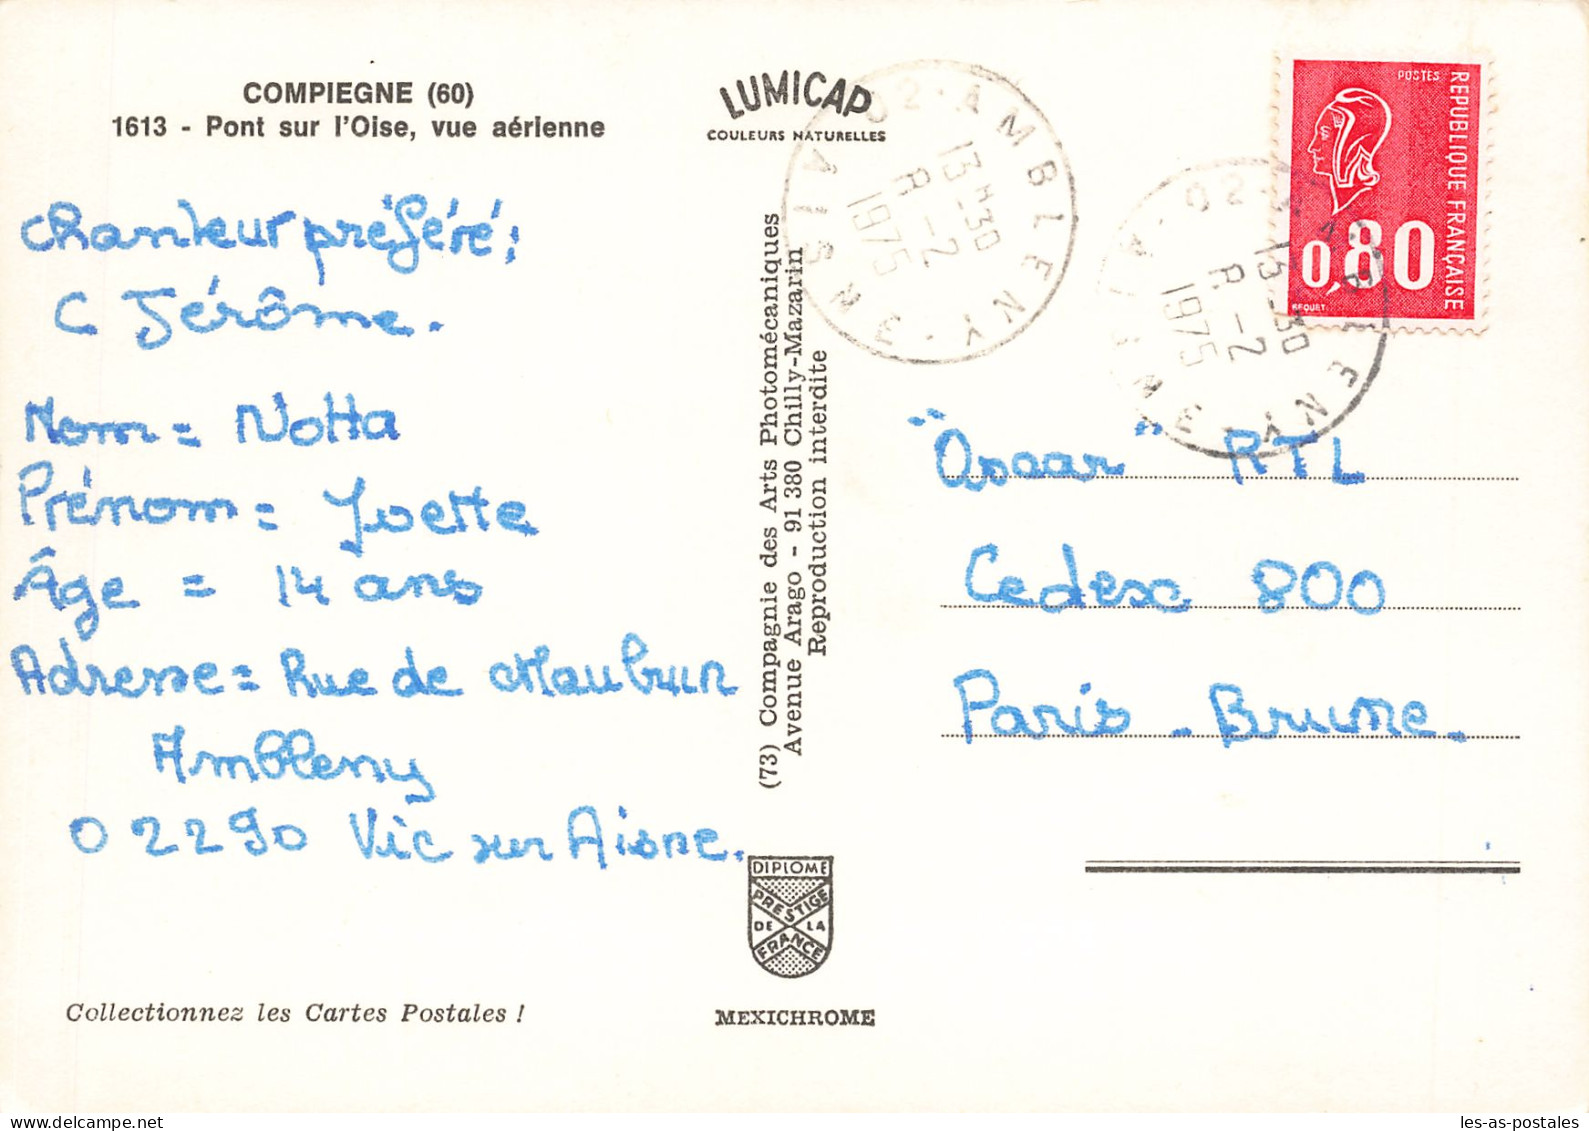 COMPIEGNE (60)
1613 - Pont sur l'Oise, vue aérienne
LUMICAP
COULEURS NATURELLES
Chanteur préféré:
C Jérôme.
Nom = Notta
Prénom = Yvette
Âge = 14 ans
Adresse = Rue de Maubrun
Ambleny
02290 Vic sur Aisne.
(73) Compagnie des Arts Photomécaniques
Avenue Arago - 91 380 Chilly-Mazarin
Reproduction interdite
02 - AMBLENY - AISNE
13H30
A -2
1975
02 - AMBLENY - AISNE
13H30
A -2
1975
POSTES
REPUBLIQUE FRANÇAISE
0,80
BEQUET
"Oscar" RTL
Cedex 800
Paris - Brune.
DIPLOME
PRESTIGE
DE LA
FRANCE
MEXICHROME
Collectionnez les Cartes Postales !
les-as-postales